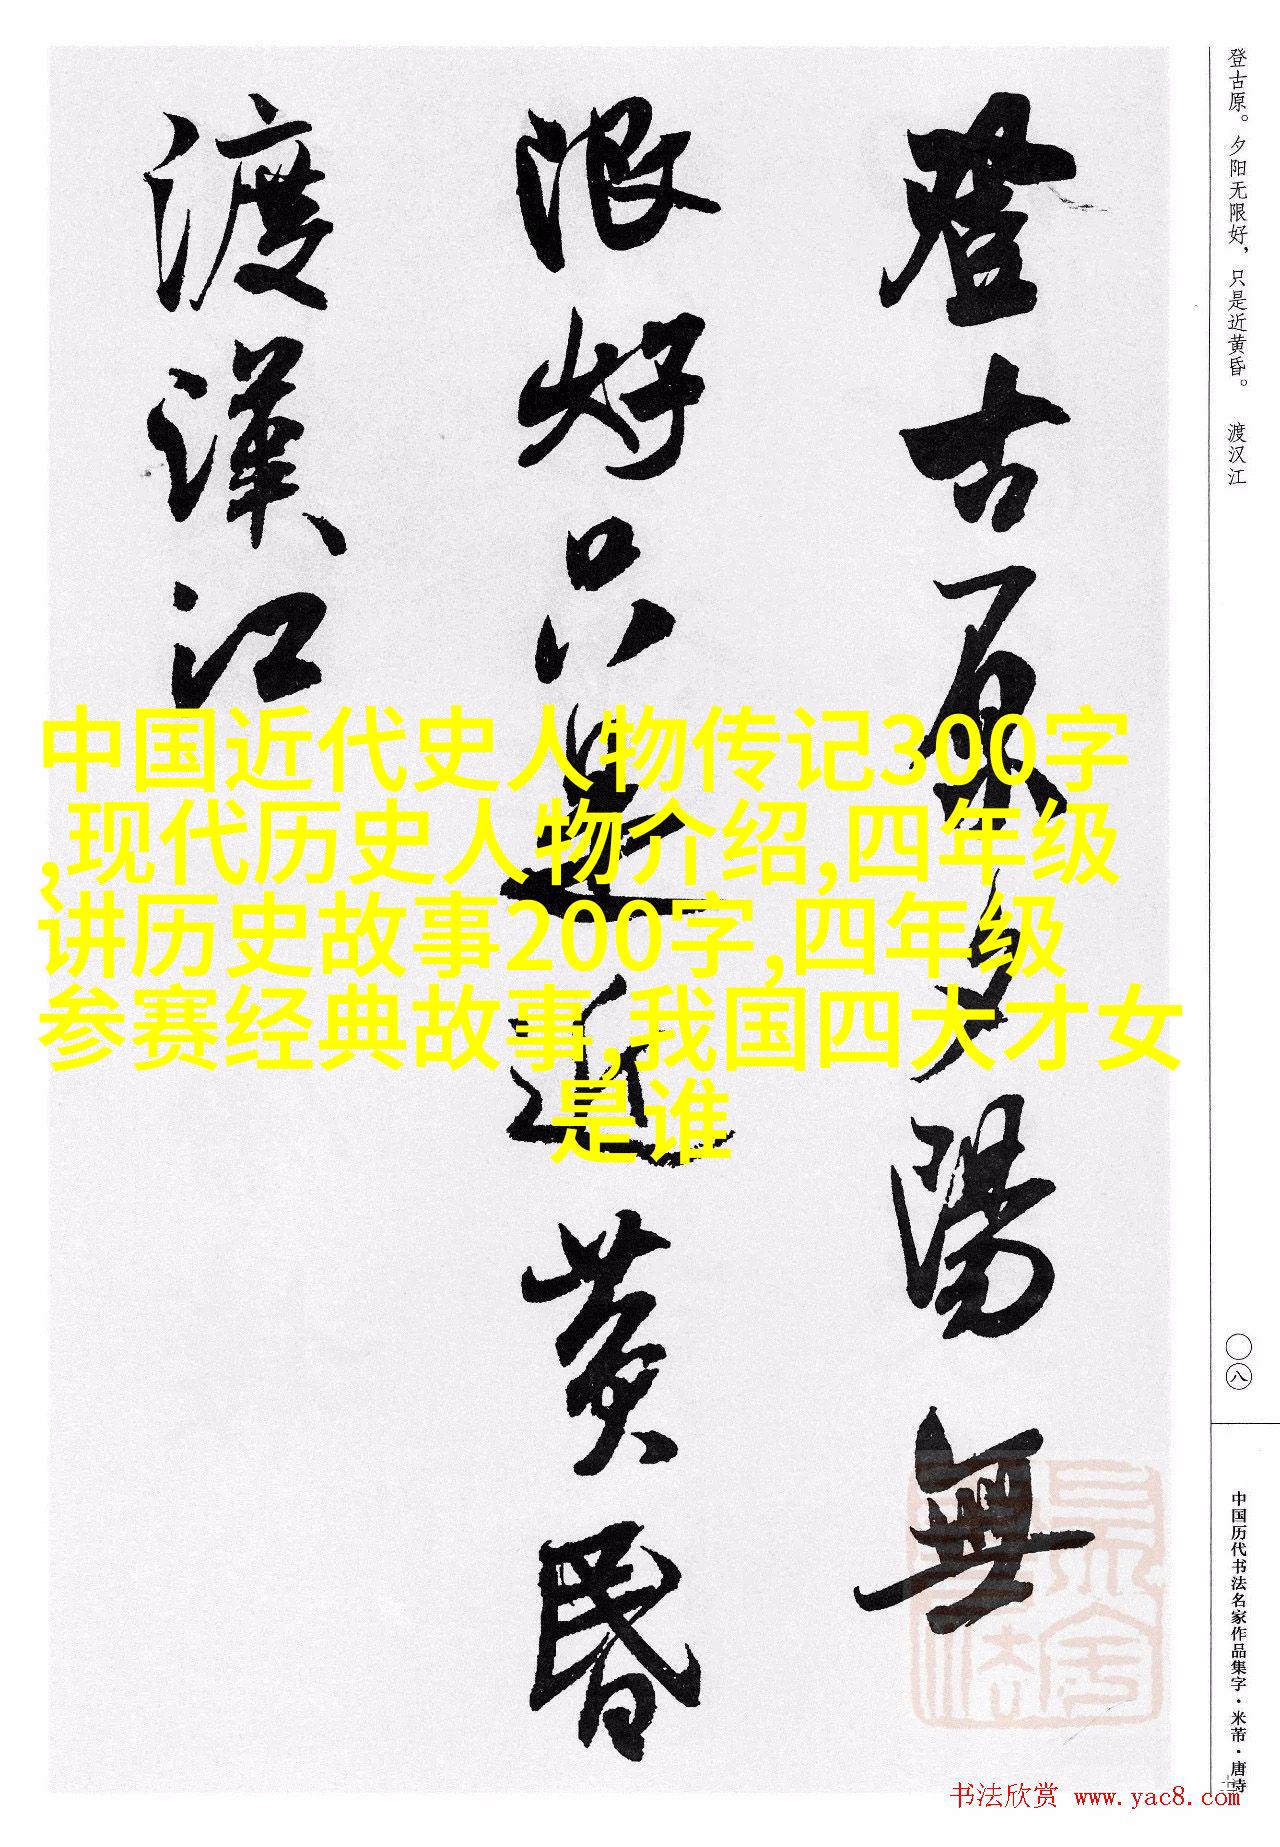 登古原。夕阳无限好，只是近黄昏。 渡汉江
登古原夕陽無
限好只是近黄昏
渡漢江
中国近代史人物传记300字
,现代历史人物介绍,四年级
讲历史故事200字,四年级
参赛经典故事,我国四大才女
是谁
〇八
中国历代书法名家作品集字·米芾·唐诗
书法欣赏 www.yac8.com